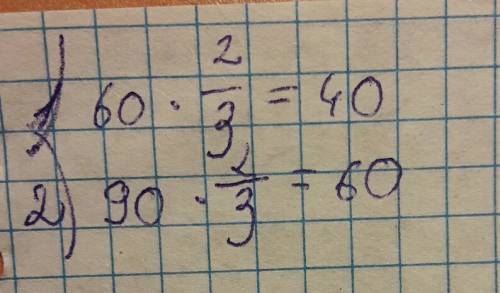 1) 60 · 2/3 = 40
2) 90 · 2/3 = 60